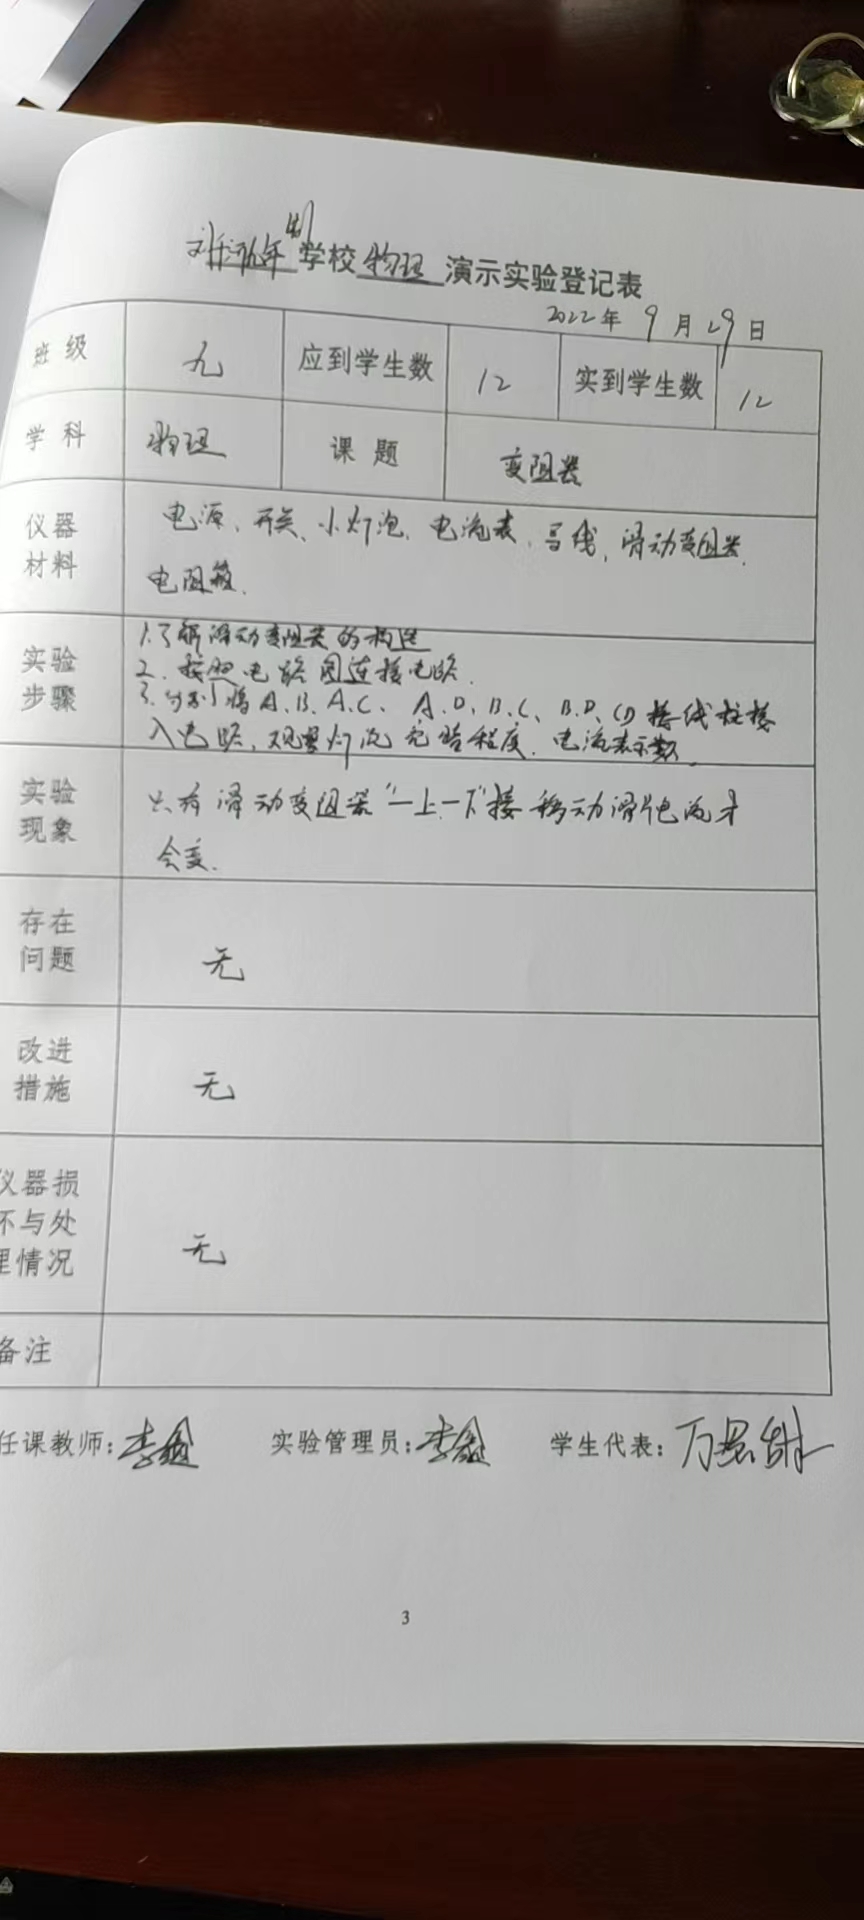 九年制学校物理演示实验登记表
2022年9月29日
班级 九 应到学生数 12 实到学生数 12
学科 物理 课题 变阻器
仪器材料
电源、开关、小灯泡、电流表、导线、滑动变阻器、
电阻箱.
实验步骤
1.了解滑动变阻器的构造
2.按照电路图连接电路.
3.分别将A、B、A、C、A、D、B、C、B、D、CD接线柱接
入电路,观察灯泡亮暗程度、电流表示数.
实验现象
只有滑动变阻器“一上一下”接移动滑片电流才
会变.
存在问题 无
改进措施 无
仪器损坏与处理情况 无
备注
任课教师:李鑫 实验管理员:李鑫 学生代表:万
3